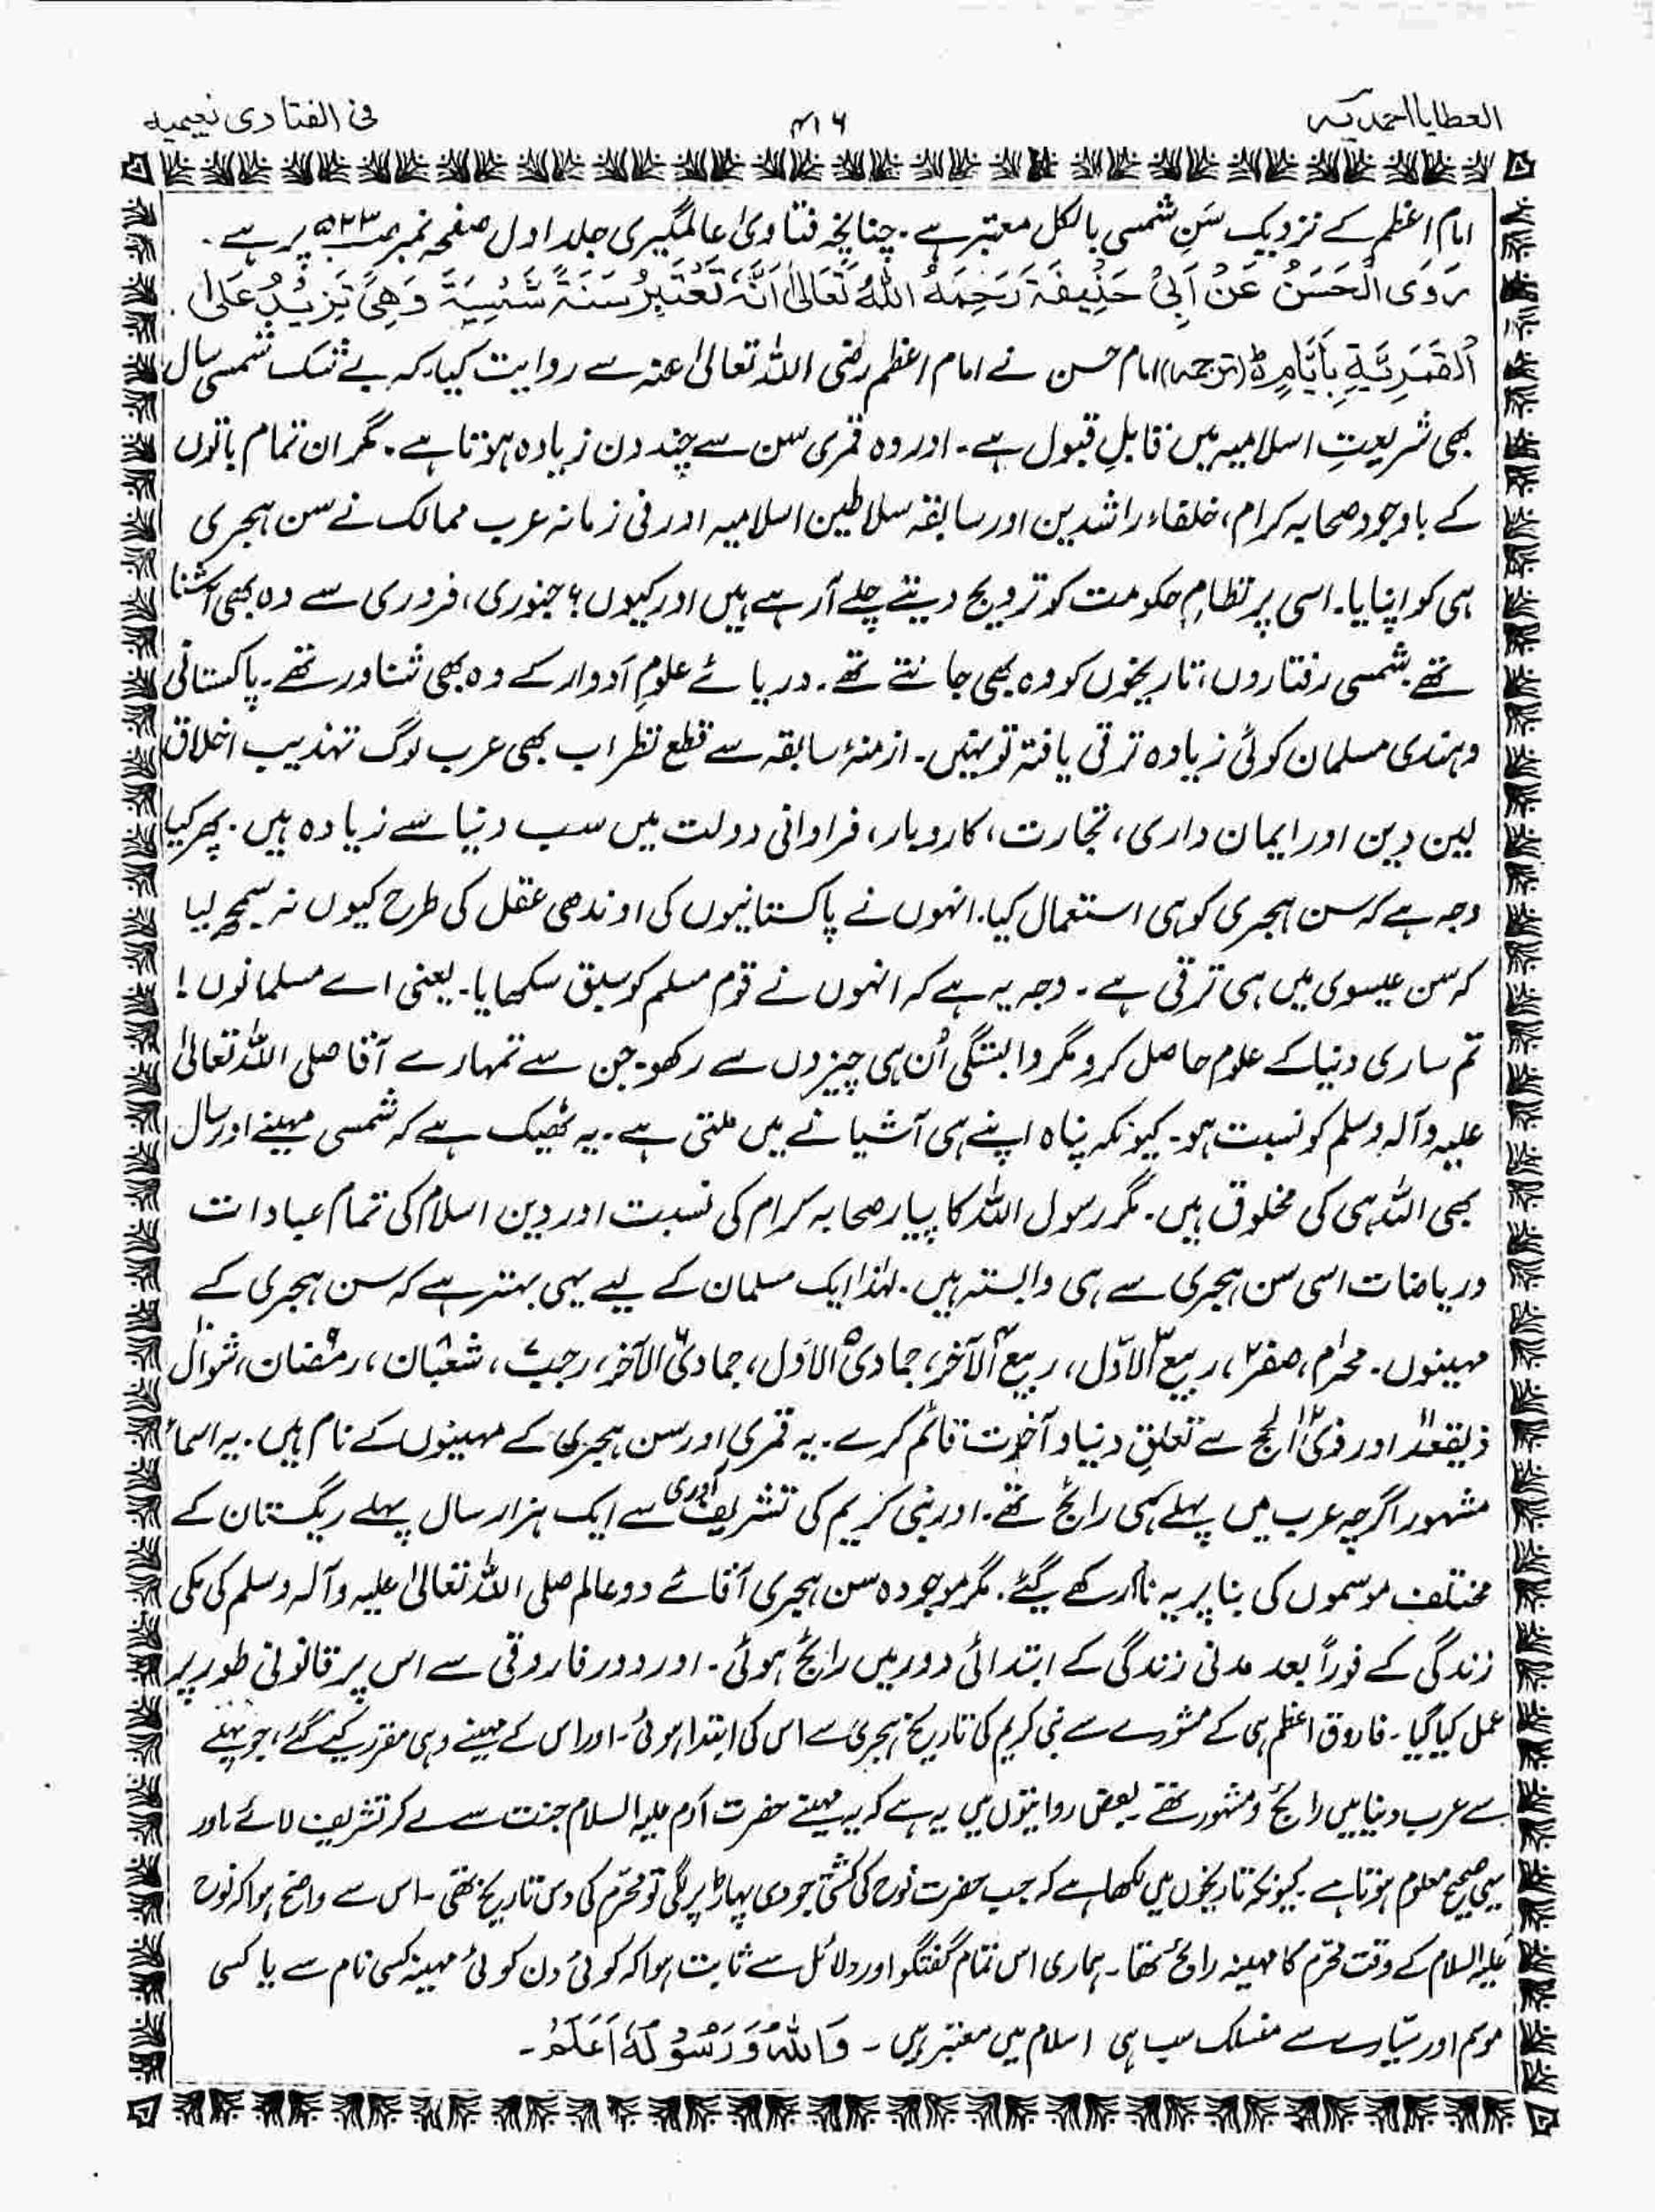 العطایا احمدیہ
۴۱۶
فی الفتاوی نعیمیہ
امام اعظم کے نزدیک سَنِ شمسی بالکل معتبر ہے۔ چنانچہ فتاویٰ عالمگیری جلد اول صفحہ نمبر ۵۲۳ پر ہے۔
رَوَی الْحَسَنُ عَنْ اَبِیْ حَنِیْفَۃَ رَحِمَہُ اللّٰہُ تَعَالیٰ اَنَّہٗ تَعْتَبِرُ سَنَۃً شَمْسِیَۃً وَھِیَ تَزِیْدُ عَلیٰ
الْقَمَرِیَّۃِ بِاَیَّامٍ ط (ترجمہ) امام حسن نے امام اعظم رضی اللہ تعالیٰ عنہ سے روایت کیا۔ کہ بے شک شمسی سال
بھی شریعتِ اسلامیہ میں قابلِ قبول ہے۔ اور وہ قمری سن سے چند دن زیادہ ہوتا ہے۔ مگر ان تمام باتوں
کے باوجود صحابہ کرام، خلفاء راشدین اور سابقہ سلاطین اسلامیہ اور فی زمانہ عرب ممالک نے سن ہجری
ہی کو اپنایا۔ اسی پر نظامِ حکومت کو ترویج دیتے چلے آ رہے ہیں اور کیوں؟ جنوری، فروری سے وہ بھی آشنا
تھے۔ شمسی رفتاروں، تاریخوں کو وہ بھی جانتے تھے۔ دریائے علومِ اَدوار کے وہ بھی شناور تھے۔ پاکستانی
و ہندی مسلمان کوئی زیادہ ترقی یافتہ تو نہیں۔ ازمنۂ سابقہ سے قطع نظر اب بھی عرب لوگ تہذیب اخلاق
لین دین اور ایمان داری، تجارت، کاروبار، فراوانی دولت میں سب دنیا سے زیادہ ہیں۔ پھر کیا
وجہ ہے کہ سن ہجری کو ہی استعمال کیا۔ انہوں نے پاکستانیوں کی اوندھی عقل کی طرح کیوں نہ سمجھ لیا
کہ سن عیسوی میں ہی ترقی ہے۔ وجہ یہ ہے کہ انہوں نے قوم مسلم کو سبق سکھایا۔ یعنی اے مسلمانوں!
تم ساری دنیا کے علوم حاصل کرو مگر وابستگی اُن ہی چیزوں سے رکھو۔ جن سے تمہارے آقا صلی اللہ تعالیٰ
علیہ وآلہ وسلم کو نسبت ہو۔ کیونکہ پناہ اپنے ہی آشیانے میں ملتی ہے۔ یہ ٹھیک ہے کہ شمسی مہینے اور سال
بھی اللہ ہی کی مخلوق ہیں۔ مگر رسول اللہ کا پیار صحابہ کرام کی نسبت اور دین اسلام کی تمام عبادات
و ریاضات اسی سن ہجری سے ہی وابستہ ہیں۔ لہٰذا ایک مسلمان کے لیے یہی بہتر ہے کہ سن ہجری کے
مہینوں۔ محرم۱، صفر۲، ربیع الاوّل۳، ربیع الآخر۴، جمادی الاول۵، جمادی الآخر۶، رجب۷، شعبان۸، رمضان۹، شوال۱۰
ذیقعد۱۱ اور ذی الحج۱۲ سے تعلقِ دنیا و آخرت قائم کرے۔ یہ قمری اور سن ہجری کے مہینوں کے نام ہیں۔ یہ اسماء
مشہور اگرچہ عرب میں پہلے ہی رائج تھے۔ اور نبی کریم کی تشریف آوری سے ایک ہزار سال پہلے ریگستان کے
مختلف موسموں کی بنا پر یہ نام رکھے گئے۔ مگر موجودہ سن ہجری آقائے دو عالم صلی اللہ تعالیٰ علیہ وآلہ وسلم کی مکی
زندگی کے فوراً بعد مدنی زندگی کے ابتدائی دور میں رائج ہوئی۔ اور دور فاروقی سے اس پر قانونی طور پر
عمل کیا گیا۔ فاروق اعظم ہی کے مشورے سے نبی کریم کی تاریخ ہجری سے اس کی ابتدا ہوئی۔ اور اس کے مہینے وہی مقرر کیے گئے، جو پہلے
سے عرب دنیا میں رائج و مشہور تھے۔ بعض روایتوں میں یہ ہے کہ یہ مہینے حضرت آدم علیہ السلام جنت سے لے کر تشریف لائے۔ اور
یہی صحیح معلوم ہوتا ہے۔ کیونکہ تاریخوں میں لکھا ہے کہ جب حضرت نوح کی کشتی جودی پہاڑ پر لگی تو محرّم کی دس تاریخ تھی۔ اس سے واضح ہوا کہ نوح
علیہ السلام کے وقت محرّم کا مہینہ رائج تھا۔ ہماری اس تمام گفتگو اور دلائل سے ثابت ہوا کہ کوئی دن کوئی مہینہ کسی نام سے یا کسی
موسم اور سیّارے سے منسلک سب ہی اسلام میں معتبر ہیں۔ وَاللّٰہُ وَرَسُوْلُہٗ اَعْلَمُ۔